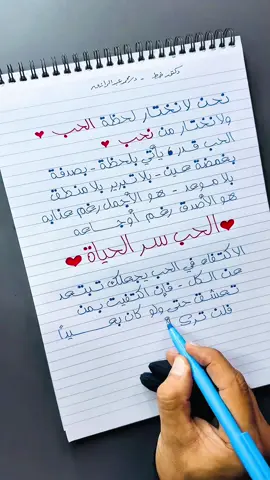 نحن لا نختار لحظة الحب
ولا نختار من نحب
الحب قدر يأتي بلحظة - بصدفة
بغمضة عين - بلا تبرير بلا منطق
بلا موعد - هو الأجمل رغم عذابه
هو الأصدق رغم أوجاعه
الحب سر الحياة
الاكتفاء في الحب يجعلك تبتعد
عن الكل - فإن اكتفيت بمن
تعشق حتى ولو كان بعيداً
فلن ترى